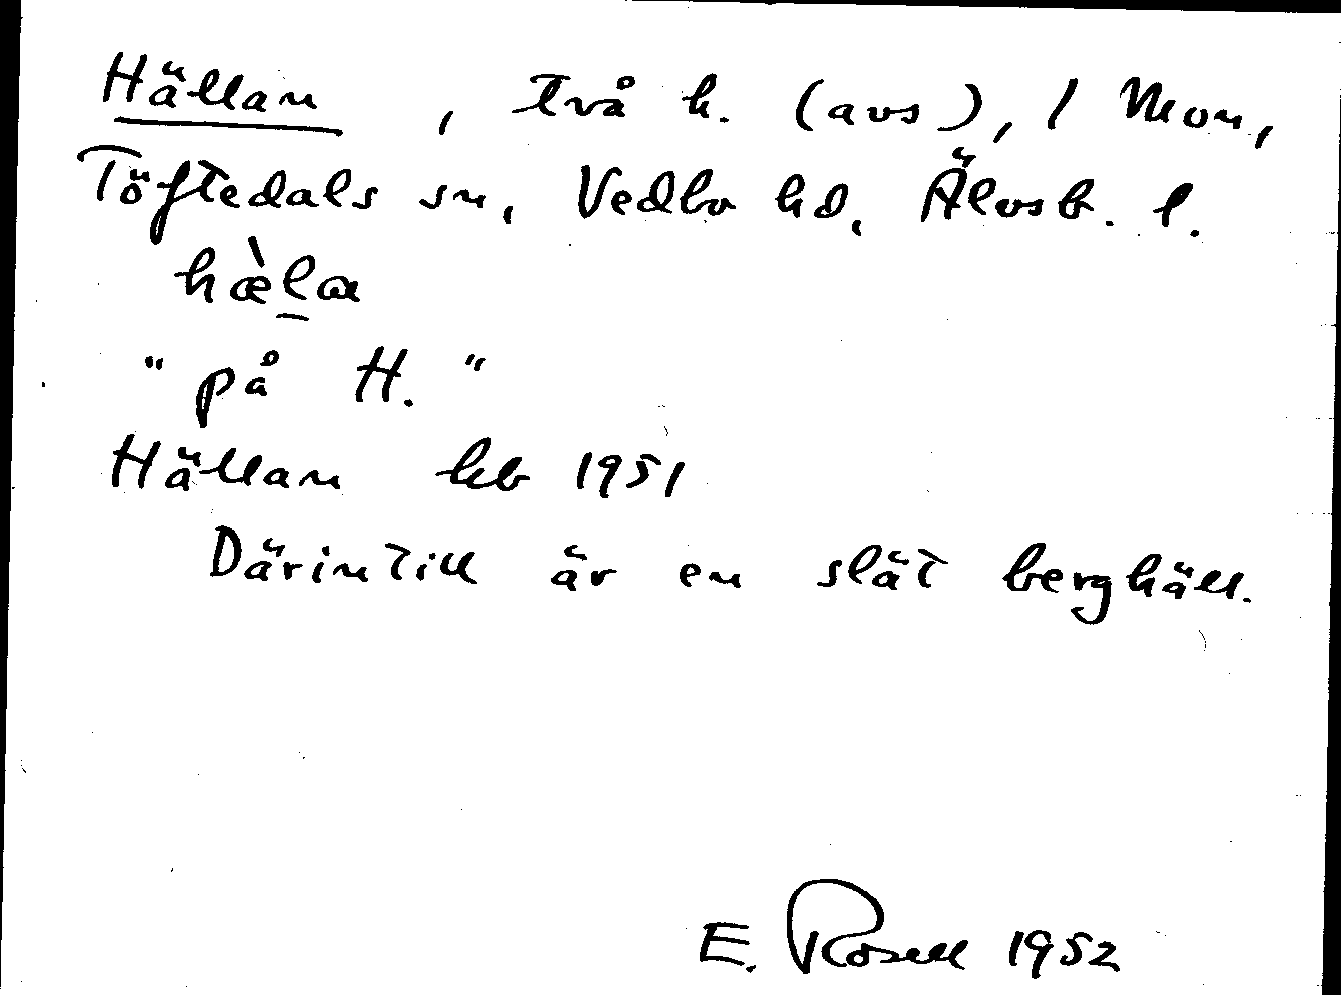 Hällan, två h. (avs), 1 Mon,
Töftedals sn, Vedbo hd, Älvsb. l.
hæ̀l̠a
"på H."
Hällan kb 1951
Därintill är en slät berghäll.
E. Rosell 1952